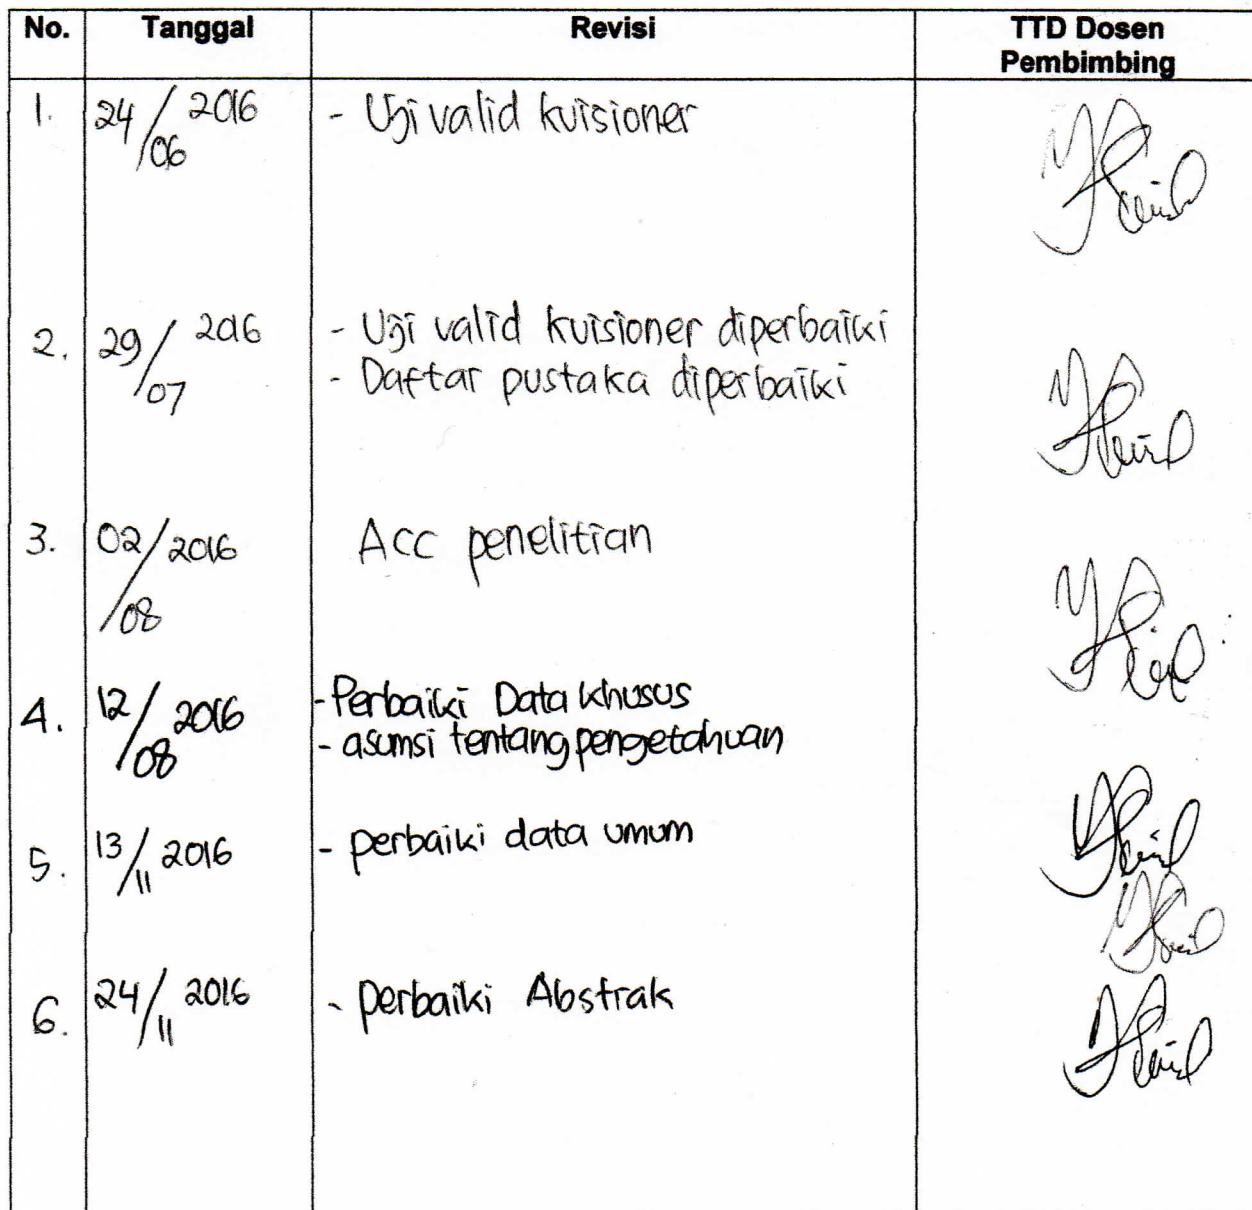 No. Tanggal Revisi TTD Dosen
Pembimbing
1. 24/06 2016 - Uji valid kuisioner
2. 29/07 2016 - Uji valid kuisioner diperbaiki
- Daftar pustaka diperbaiki
3. 02/08 2016 Acc penelitian
4. 12/08 2016 - Perbaiki Data khusus
- asumsi tentang pengetahuan
5. 13/11 2016 - perbaiki data umum
6. 24/11 2016 - perbaiki Abstrak